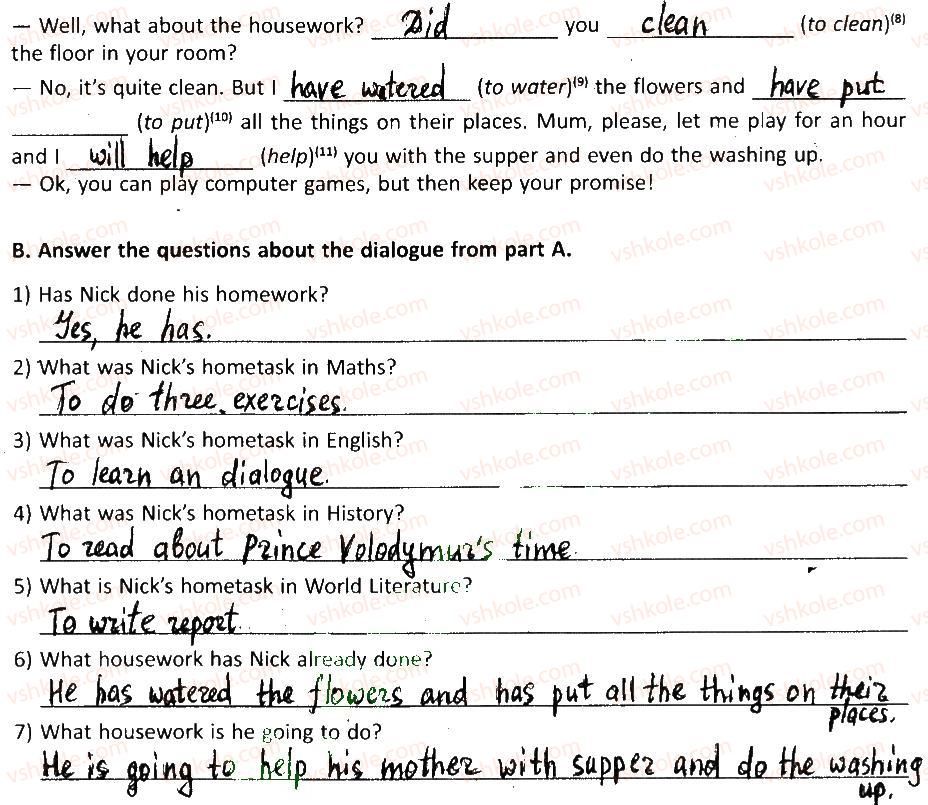 — Well, what about the housework? Did you clean (to clean)(8)
the floor in your room?
— No, it's quite clean. But I have watered (to water)(9) the flowers and have put
(to put)(10) all the things on their places. Mum, please, let me play for an hour
and I will help (help)(11) you with the supper and even do the washing up.
— Ok, you can play computer games, but then keep your promise!
B. Answer the questions about the dialogue from part A.
1) Has Nick done his homework?
Yes, he has.
2) What was Nick's hometask in Maths?
To do three exercises.
3) What was Nick's hometask in English?
To learn an dialogue.
4) What was Nick's hometask in History?
To read about Prince Volodymur's time.
5) What is Nick's hometask in World Literature?
To write report.
6) What housework has Nick already done?
He has watered the flowers and has put all the things on their
places.
7) What housework is he going to do?
He is going to help his mother with supper and do the washing
up.